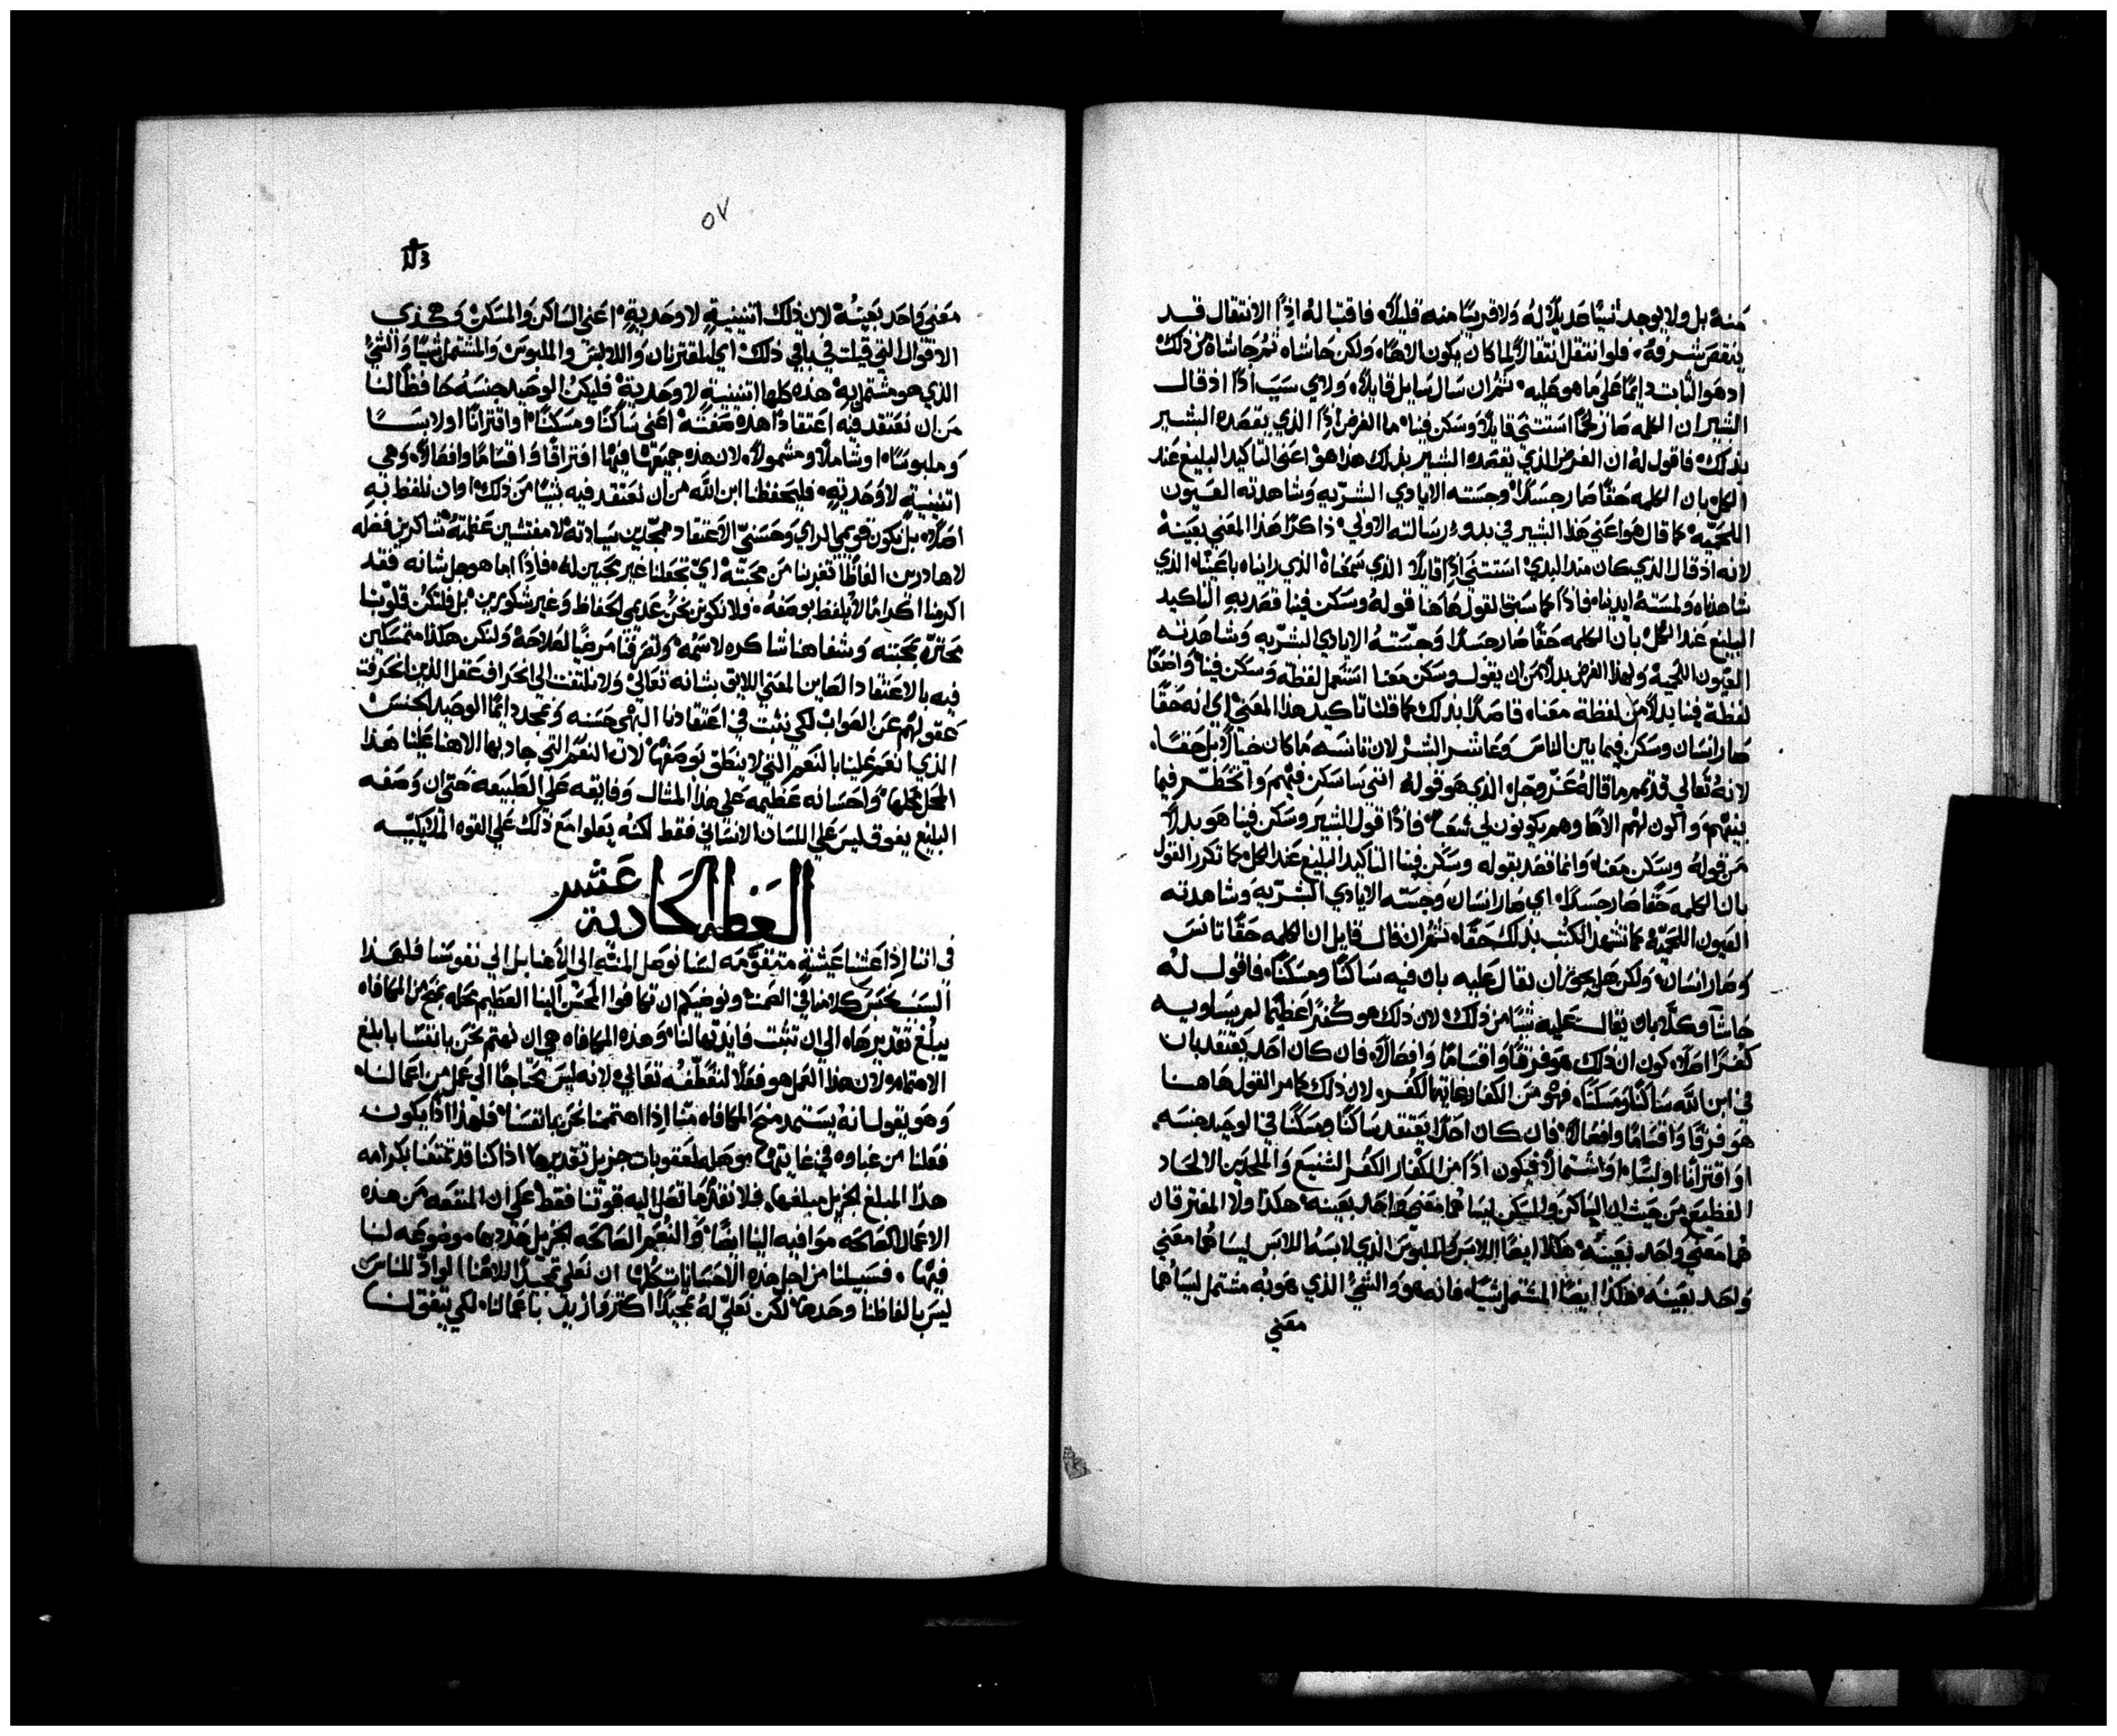 منه بل ولا يوجد شيًا عديلًا له ولا قريبًا منه قليلًا، فاقتباله اذًا الانتقال قد
ينقص شرفه، فلو انتقل انتقالًا لما كان يكون الاهًا، ولكن حاشاه ثم حاشاه من ذلك
اذ هو الثابت دايمًا على ما هو عليه، ثم ان سال سايل قايلًا، ولاي سبب اذًا اذ قال
البشير ان الكلمه صار لحمًا استثنى قايلًا وسكن فينا، ما الغرض اذًا الذي يقصده البشير
بذلك، فاقول له ان الغرض الذي يقصده البشير بذلك هذا هو، اعني التاكيد البليغ عند
الكل بان الكلمه حقًا صار جسدًا، وجسته الايادي البشريه وشاهدته العيون
اللحميه، كما قال هو اعني هذا البشير في بدو رسالته الاولى، ذاكرًا هذا المعني بعينه
لانه اذ قال الذي كان منذ البدي، استثنى اذًا قايلًا الذي سمعناه الذي رايناه باعيننا، الذي
شاهدناه ولمسته ايدينا، فاذًا كما سبق القول هاهنا قوله وسكن فينا قصد به التاكيد
البليغ عند الكل، بان الكلمه حقًا صار جسدًا، وجسته الايادي البشريه وشاهدته
العيون اللحميه، ولهذا الغرض بدلًا من ان يقول وسكن معنا استعمل لفظة وسكن فينا، واضعًا
لفظة فينا بدلًا من لفظة معنا، قاصدًا بذلك كما قلنا تاكيد هذا المعني، اي انه حقًا
صار انسان وسكن فيما بين الناس وعاشر البشر لان تانسه ما كان خيالًا بل حقًا،
لانه تعالي قد تمم ما قاله عز وجل الذي هو قوله انني ساسكن فيهم واتخطر فيما
بينهم، واكون لهم الاهًا وهم يكونون لي شعبًا، فاذًا قول البشير وسكن فينا هو بدلًا
من قوله وسكن معنا، وانما قصد بقوله وسكن فينا التاكيد البليغ عند الكل كما تكرر القول
بان الكلمه حقًا صار جسدًا، اي صار انسان وجسته الايادي البشريه وشاهدته
العيون اللحميه، كما تشهد الكتب بذلك حقًا، ثم ان قال قايل ان الكلمه حقًا تانس
وصار انسان، ولكن هل يجوز ان يقال عليه بان فيه ساكنًا ومسكنًا، فاقول له
حاشا وكلا بان يقال عليه شيًا من ذلك، لان ذلك هو كفرًا عظيمًا لم يساويه
كفرًا اصلًا، كون ان ذلك هو فرقًا واقسامًا وافصالًا، فان كان احد يعتقد بان
في ابن الله ساكنًا ومسكنًا، فهو من الكفار بغاية الكفر، لان ذلك كما مر القول هاهنا
هو فرقًا واقسامًا وافصالًا، فان كان احدًا يعتقد ساكنًا ومسكنًا في الوحيد جنسه،
او اقترانًا او لبسًا، او اشتمالًا، فيكون اذًا من الكفار الكفر الشنيع والملحدين الالحاد
الفظيع، من حيث ان الساكن والمسكن ليسا هما معني واحد بعينه، هكذا ولا المقترنان
هما معني واحد بعينه، هكذا ايضًا اللابس والملبوس الذي لابسه اللابس ليسا هما معني
واحد بعينه، هكذا ايضًا المشتمل شيًا، فانه هو والشي الذي هو به مشتمل ليسا هما
معني
٥٧
معني واحد بعينه، لان ذلك اثنينية لا وحدية، اعني الساكن والمسكن وهذي
الاقوال التي قيلت في باقي ذلك، اي المقترنان واللابس والملبوس والمشتمل شيًا والشي
الذي هو مشتمل به، هذه كلها اثنينية لا وحدية، فليكن الوحيد جنسه حافظًا لنا
من ان نعتقد فيه اعتقادًا هذه صفته، اعني ساكنًا ومسكنًا، او اقترانًا او لابسًا
وملبوسًا، او شاملًا ومشمولًا، لان هذه جميعها فيها افتراقًا واقسامًا وافصالًا، وهي
اثنينية لا وحدية، فليحفظنا ابن الله من ان نعتقد فيه شيًا من ذلك، او ان نلفظ به
اصلًا، بل نكون قويمي الراي وحسني الاعتقاد، ممجدين سيادته لا مفتشين عظمته، شاكرين فضله
لا هادرين الفاظًا تغربنا من محبته، اي تجعلنا غير محبين له، فاذًا اما هو جل شانه فقد
اكرمنا اكرامًا لا يلفظ بوصفه، فلا نكونن نحن عديمي الحفاظ وغير شكورين، بل فلتكن قلوبنا
محتره بمحبته وشفاهنا شاكره لاسمه، وتصرفنا مرضيًا لصلاحه، ولنكن هكذا متمسكين
فيه بالاعتقاد الصاين المعني اللايق بشانه تعالي، ولا نلتفت الى انحراف عقل الذين انحرفت
عقولهم عن الصواب، لكي نثبت في اعتقادنا البهي حسنه ونمجد دايمًا الوحيد الجنس
الذي انعم علينا بالنعم التي لا ينطق بوصفها، لان النعم التي جاد بها الاهنا علينا هذا
المحل محلها، واحسانه عظيمه علي هذا المثال وفايقه علي الطبيعة حتي ان وصفه
البليغ يفوق ليس علي اللسان الانساني فقط لكنه يعلوا مع ذلك علي القوه الملايكيه
العظه الحادية عشر
في اننا اذا عشنا عيشة متقومه لسنا نوصل المنة الى الاهنا بل الي نفوسنا فلهذا
السبب نحبس كلامنا في الصمت ونوصيكم ان تكافوا المحسن الينا العظيم محله بمنح من المكافاه
يبلغ تقديرها، الي ان تثبت فايدتها لنا، وهذه المكافاه هي ان نهتم نحن بانفسنا بابلغ
الاهتمام، ولان هذا العمل هو فعلًا لتعطفه تعالي، لانه ليس محتاجًا الي عمل من اعمالنا،
وهو يقول انه يستمد منح المكافاه منا اذا اهتممنا نحن بانفسنا، فلهذا اذًا يكون
فعلنا من غباوه في غايتها موهله لعقوبات جزيل تقديرها، اذا كنا قد تمتعنا بكرامه
هذا المبلغ الجزيل مبلغها، فلا نقدم ما تصل اليه قوتنا فقط، علي ان المنفعه من هذه
الاعمال الصالحه موافيه الينا ايضًا، والنعم الصالحه الجزيل عددها موضوعه لنا
فيها، فسبيلنا من اجل هذه الاحسانات كلها ان نعلي تمجيدًا لالاهنا الواد للناس
ليس بالفاظنا وحدها، لكن نعلي له تمجيدًا اكثر وازيد باعمالنا، لكي يتفق لنا